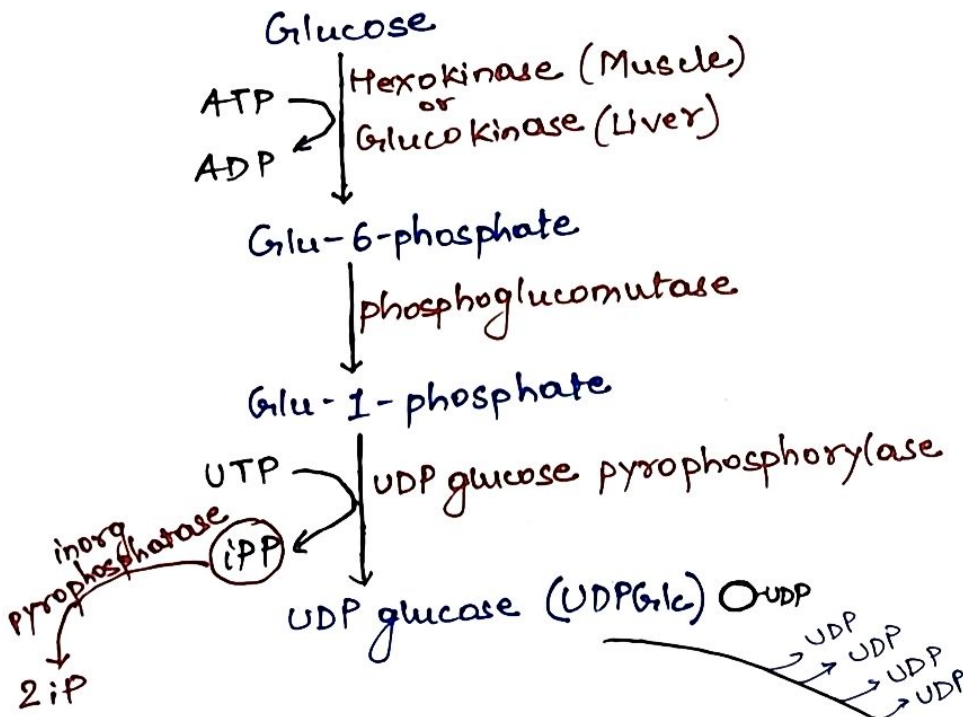 Glucose
Hexokinase (Muscle)
or
Glucokinase (Liver)
ATP
ADP
Glu-6-phosphate
phosphoglucomutase
Glu-1-phosphate
UTP
UDP glucose pyrophosphorylase
inorg
pyrophosphatase
iPP
2iP
UDP glucase (UDPGlc) O-UDP
UDP
UDP
UDP
UDP